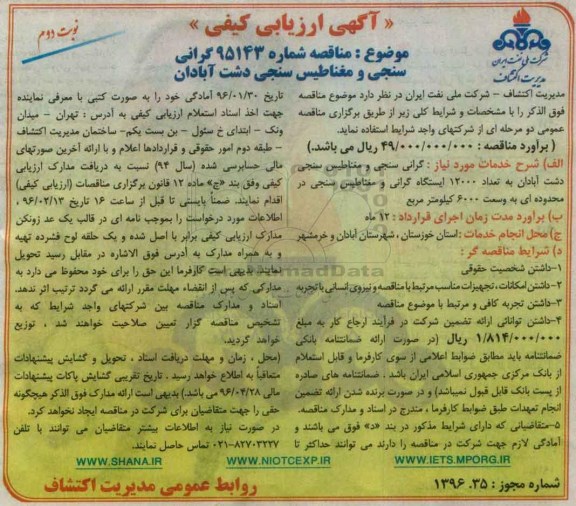 « آگهی ارزیابی کیفی »
نوبت دوم
موضوع : مناقصه شماره ۹۵۱۴۳ گرانی
سنجی و مغناطیس سنجی دشت آبادان
شرکت ملی نفت ایران
مدیریت اکتشاف
مدیریت اکتشاف - شرکت ملی نفت ایران در نظر دارد موضوع مناقصه
فوق الذکر را با مشخصات و شرایط کلی زیر از طریق برگزاری مناقصه
عمومی دو مرحله ای از شرکتهای واجد شرایط استفاده نماید.
( برآورد مناقصه : ۴۹/۰۰۰/۰۰۰/۰۰۰ ریال می باشد.)
الف) شرح خدمات مورد نیاز : گرانی سنجی و مغناطیس سنجی
دشت آبادان به تعداد ۱۲۰۰۰ ایستگاه گرانی و مغناطیس سنجی در
محدوده ای به وسعت ۶۰۰۰ کیلومتر مربع
ب) برآورد مدت زمان اجرای قرارداد : ۱۲ ماه
ج) محل انجام خدمات : استان خوزستان ، شهرستان آبادان و خرمشهر
د) شرایط مناقصه گر :
۱-داشتن شخصیت حقوقی
۲-داشتن امکانات ، تجهیزات مناسب مرتبط با مناقصه و نیروی انسانی با تجربه
۳-داشتن تجربه کافی و مرتبط با موضوع مناقصه
۴-داشتن توانائی ارائه تضمین شرکت در فرآیند ارجاع کار به مبلغ
۱/۸۱۴/۰۰۰/۰۰۰ ریال (در صورت ارائه ضمانتنامه بانکی
ضمانتنامه باید مطابق ضوابط اعلامی از سوی کارفرما و قابل استعلام
از بانک مرکزی جمهوری اسلامی ایران باشد . ضمانتنامه های صادره
از پست بانک قابل قبول نمیباشد) و در صورت برنده شدن ارائه تضمین
انجام تعهدات طبق ضوابط کارفرما ، مندرج در اسناد و مدارک مناقصه.
۵-متقاضیانی که دارای شرایط مذکور در بند «د» فوق می باشند و
آمادگی لازم جهت شرکت در مناقصه را دارند می توانند حداکثر تا
تاریخ ۹۶/۰۱/۳۰ آمادگی خود را به صورت کتبی با معرفی نماینده
جهت اخذ اسناد استعلام ارزیابی کیفی به آدرس : تهران - میدان
ونک - ابتدای خ سئول - بن بست یکم- ساختمان مدیریت اکتشاف
- طبقه دوم امور حقوقی و قراردادها اعلام و با ارائه آخرین صورتهای
مالی حسابرسی شده (سال ۹۴) نسبت به دریافت مدارک ارزیابی
کیفی وفق بند «ج» ماده ۱۲ قانون برگزاری مناقصات (ارزیابی کیفی)
اقدام نمایند. ضمناً بایستی تا قبل از ساعت ۱۶ تاریخ ۹۶/۰۲/۱۳ ،
اطلاعات مورد درخواست را بموجب نامه ای در قالب یک عد زونکن
مدارک ارزیابی کیفی برابر با اصل شده و یک حلقه لوح فشرده تهیه
و به همراه مدارک به آدرس فوق الاشاره در مقابل رسید تحویل
نمایند. بدیهی است کارفرما این حق را برای خود محفوظ می دارد به
مدارکی که پس از انقضاء مهلت مقرر ارائه می گردد ترتیب اثر ندهد.
اسناد و مدارک مناقصه بین شرکتهای واجد شرایط که به
تشخیص مناقصه گزار تعیین صلاحیت خواهند شد ، توزیع
خواهد گردید.
(محل ، زمان و مهلت دریافت اسناد ، تحویل و گشایش پیشنهادات
متعاقباً به اطلاع خواهد رسید . تاریخ تقریبی گشایش پاکات پیشنهادات
مالی ۹۶/۰۴/۲۸ می باشد.) بدیهی است ارائه مدارک فوق الذکر هیچگونه
حقی را جهت متقاضیان برای شرکت در مناقصه ایجاد نخواهد کرد.
در صورت نیاز به اطلاعات بیشتر متقاضیان می توانند با تلفن
۰۲۱-۸۲۷۰۳۲۲۷ تماس حاصل نمایند.
WWW.SHANA.IR WWW.NIOTCEXP.IR WWW.IETS.MPORG.IR
شماره مجوز : ۳۵. ۱۳۹۶
روابط عمومی مدیریت اکتشاف